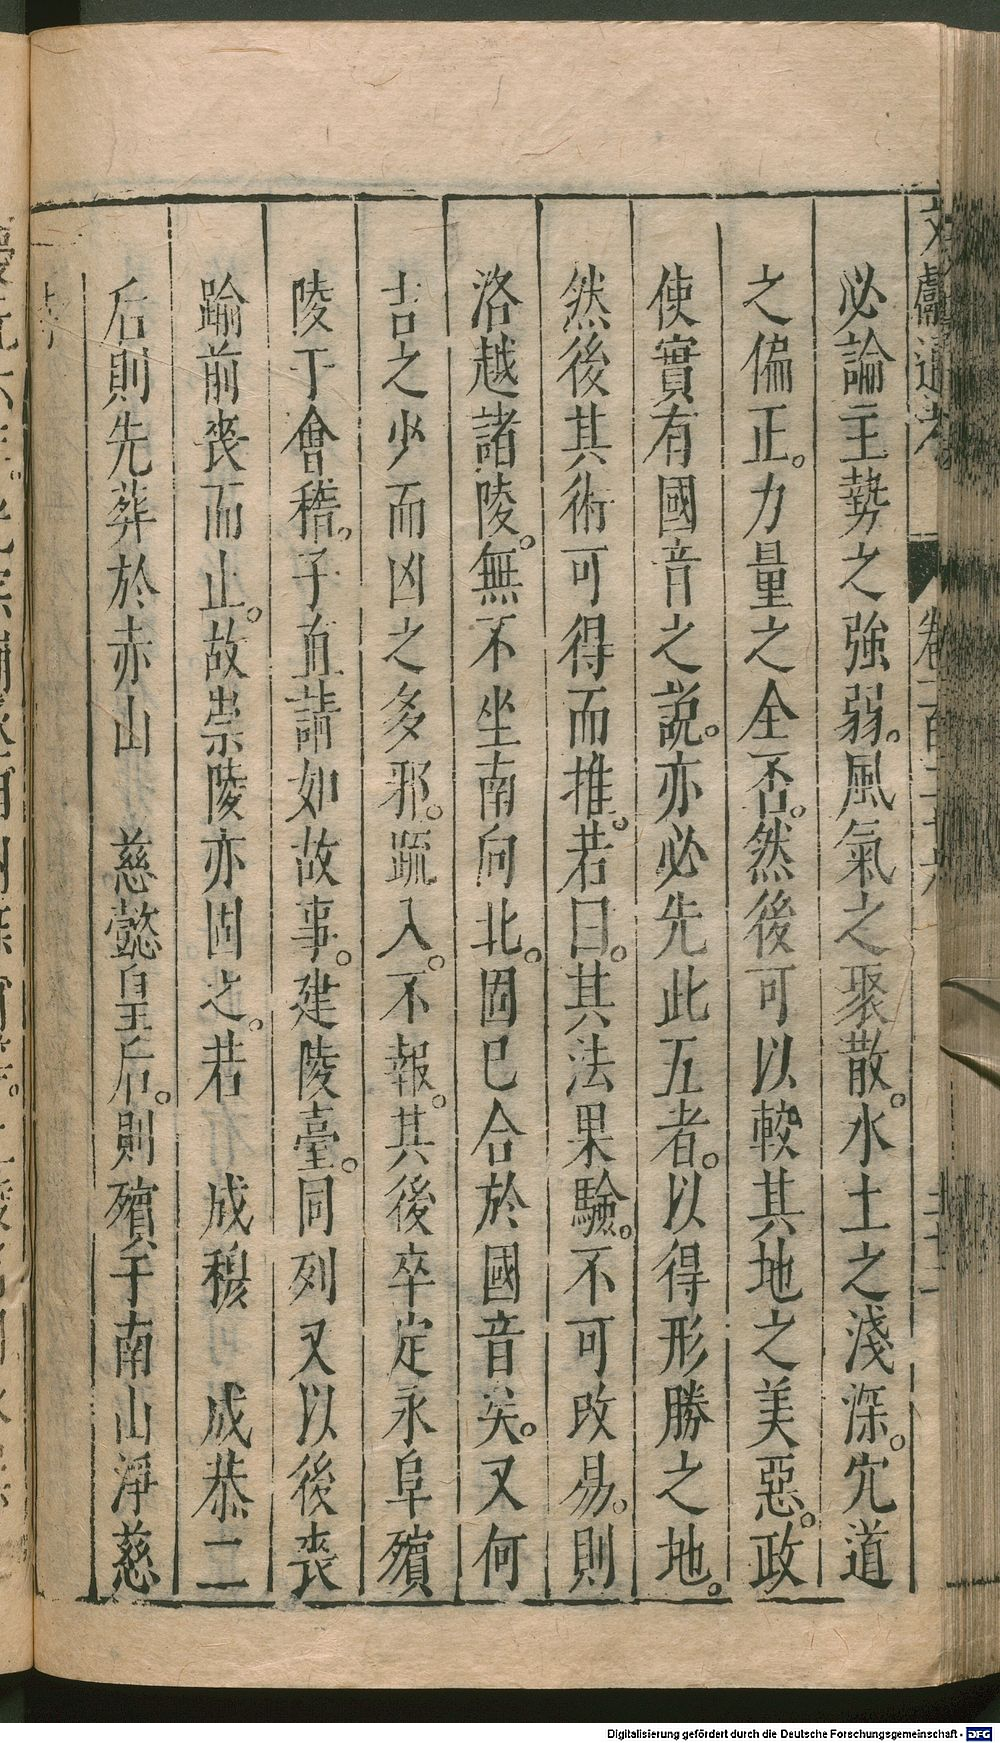 文獻通考。 卷一百二十六
必論主勢之強弱。風氣之聚散。水土之淺深。穴道
之偏正。力量之全否。然後可以較其地之美惡。政
使實有國音之說。亦必先此五者。以得形勝之地。
然後其術可得而推。若曰。其法果驗。不可改易。則
洛越諸陵。無不坐南向北。固已合於國音矣。又何
吉之少而凶之多邪。疏入。不報。其後卒定永阜殯
陵于會稽。子直請如故事。建陵臺。同列又以後喪
踰前喪而止。故崇陵亦固之。若 成穆 成恭二
后則先葬於赤山 慈懿皇后。則殯于南山淨慈
Digitalisierung gefördert durch die Deutsche Forschungsgemeinschaft - DFG